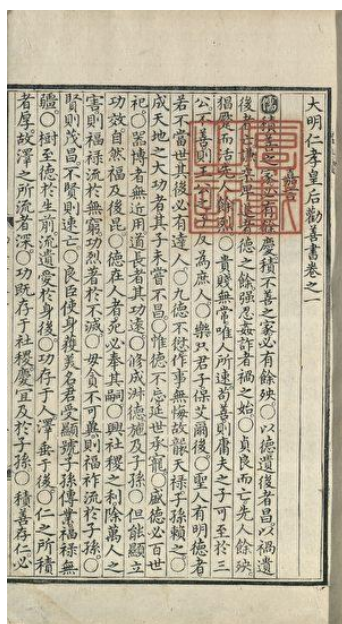 大明仁孝皇后勸善書卷之一
嘉言
儒積善之家必有餘慶積不善之家必有餘殃〇以德遺後者昌以禍遺
後者亡謙恭畢遜者德之餘强忍姦詐者禍之始〇貞良而亡先人餘殃
猖蹶而活先人餘烈〇貴賤無常唯人所速苟善則庸夫之子可至於三
公不善則王公之子反為庶人〇樂只君子保艾爾後〇聖人有明德者
若不當世其後必有達人〇九德不愆作事無悔故襲天祿子孫賴之〇
成天地之大功者其子孫未嘗不昌〇惟德不忘延世承寵〇盛德必百世
祀〇器博者無近用道長者其功遠〇修成淋德施及子孫〇但能顯立
功效自然福及後昆〇德在人者死必奉其嗣〇興社稷之利除萬人之
害則福祿流於無窮功烈著於不滅〇毋貪不可與則福祚流於子孫〇
賢則茂昌不賢則速亡〇良臣使身獲美名君受顯號子孫傳業福祿無
疆〇樹至德於生前流遺愛於身後〇功存于人澤垂于後〇仁之所積
者厚故澤之所流者深〇功既存于社稷慶宜及於子孫〇積善存仁必